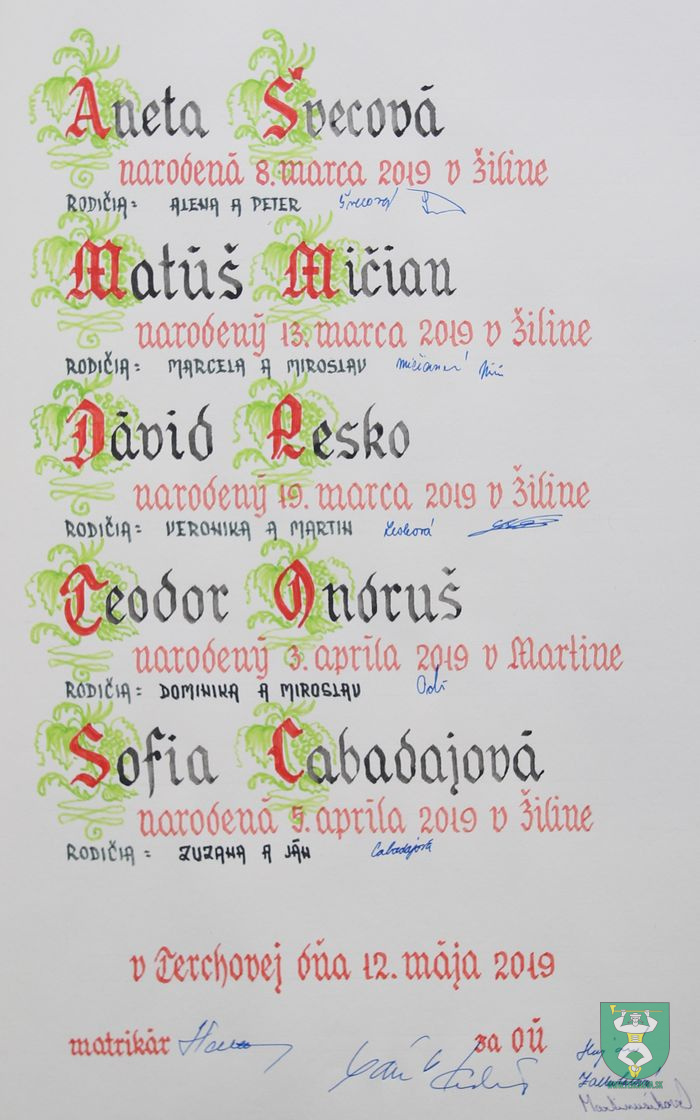 Aneta Švecová
narodená 8. marca 2019 v Žiline
RODIČIA: ALENA A PETER Švecová
Matúš Mičian
narodený 13. marca 2019 v Žiline
RODIČIA: MARCELA A MIROSLAV Mičianová
Dávid Lesko
narodený 19. marca 2019 v Žiline
RODIČIA: VERONIKA A MARTIN Lesková
Teodor Ondruš
narodený 3. apríla 2019 v Martine
RODIČIA: DOMINIKA A MIROSLAV
Sofia Cabadajová
narodená 5. apríla 2019 v Žiline
RODIČIA: ZUZANA A JÁN Cabadajová
v Terchovej dňa 12. mája 2019
matrikár za OÚ